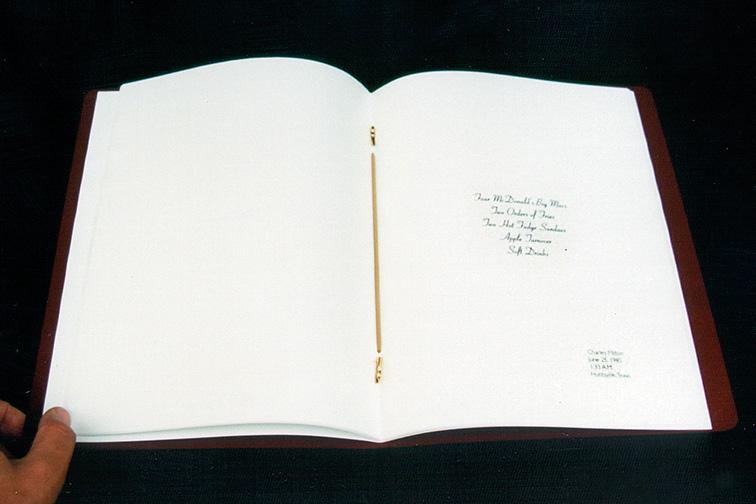 Four McDonald's Big Macs
Two Orders of Fries
Two Hot Fudge Sundaes
Apple Turnover
Soft Drinks
Charles Milton
June 25, 1985
1:33 A.M.
Huntsville, Texas